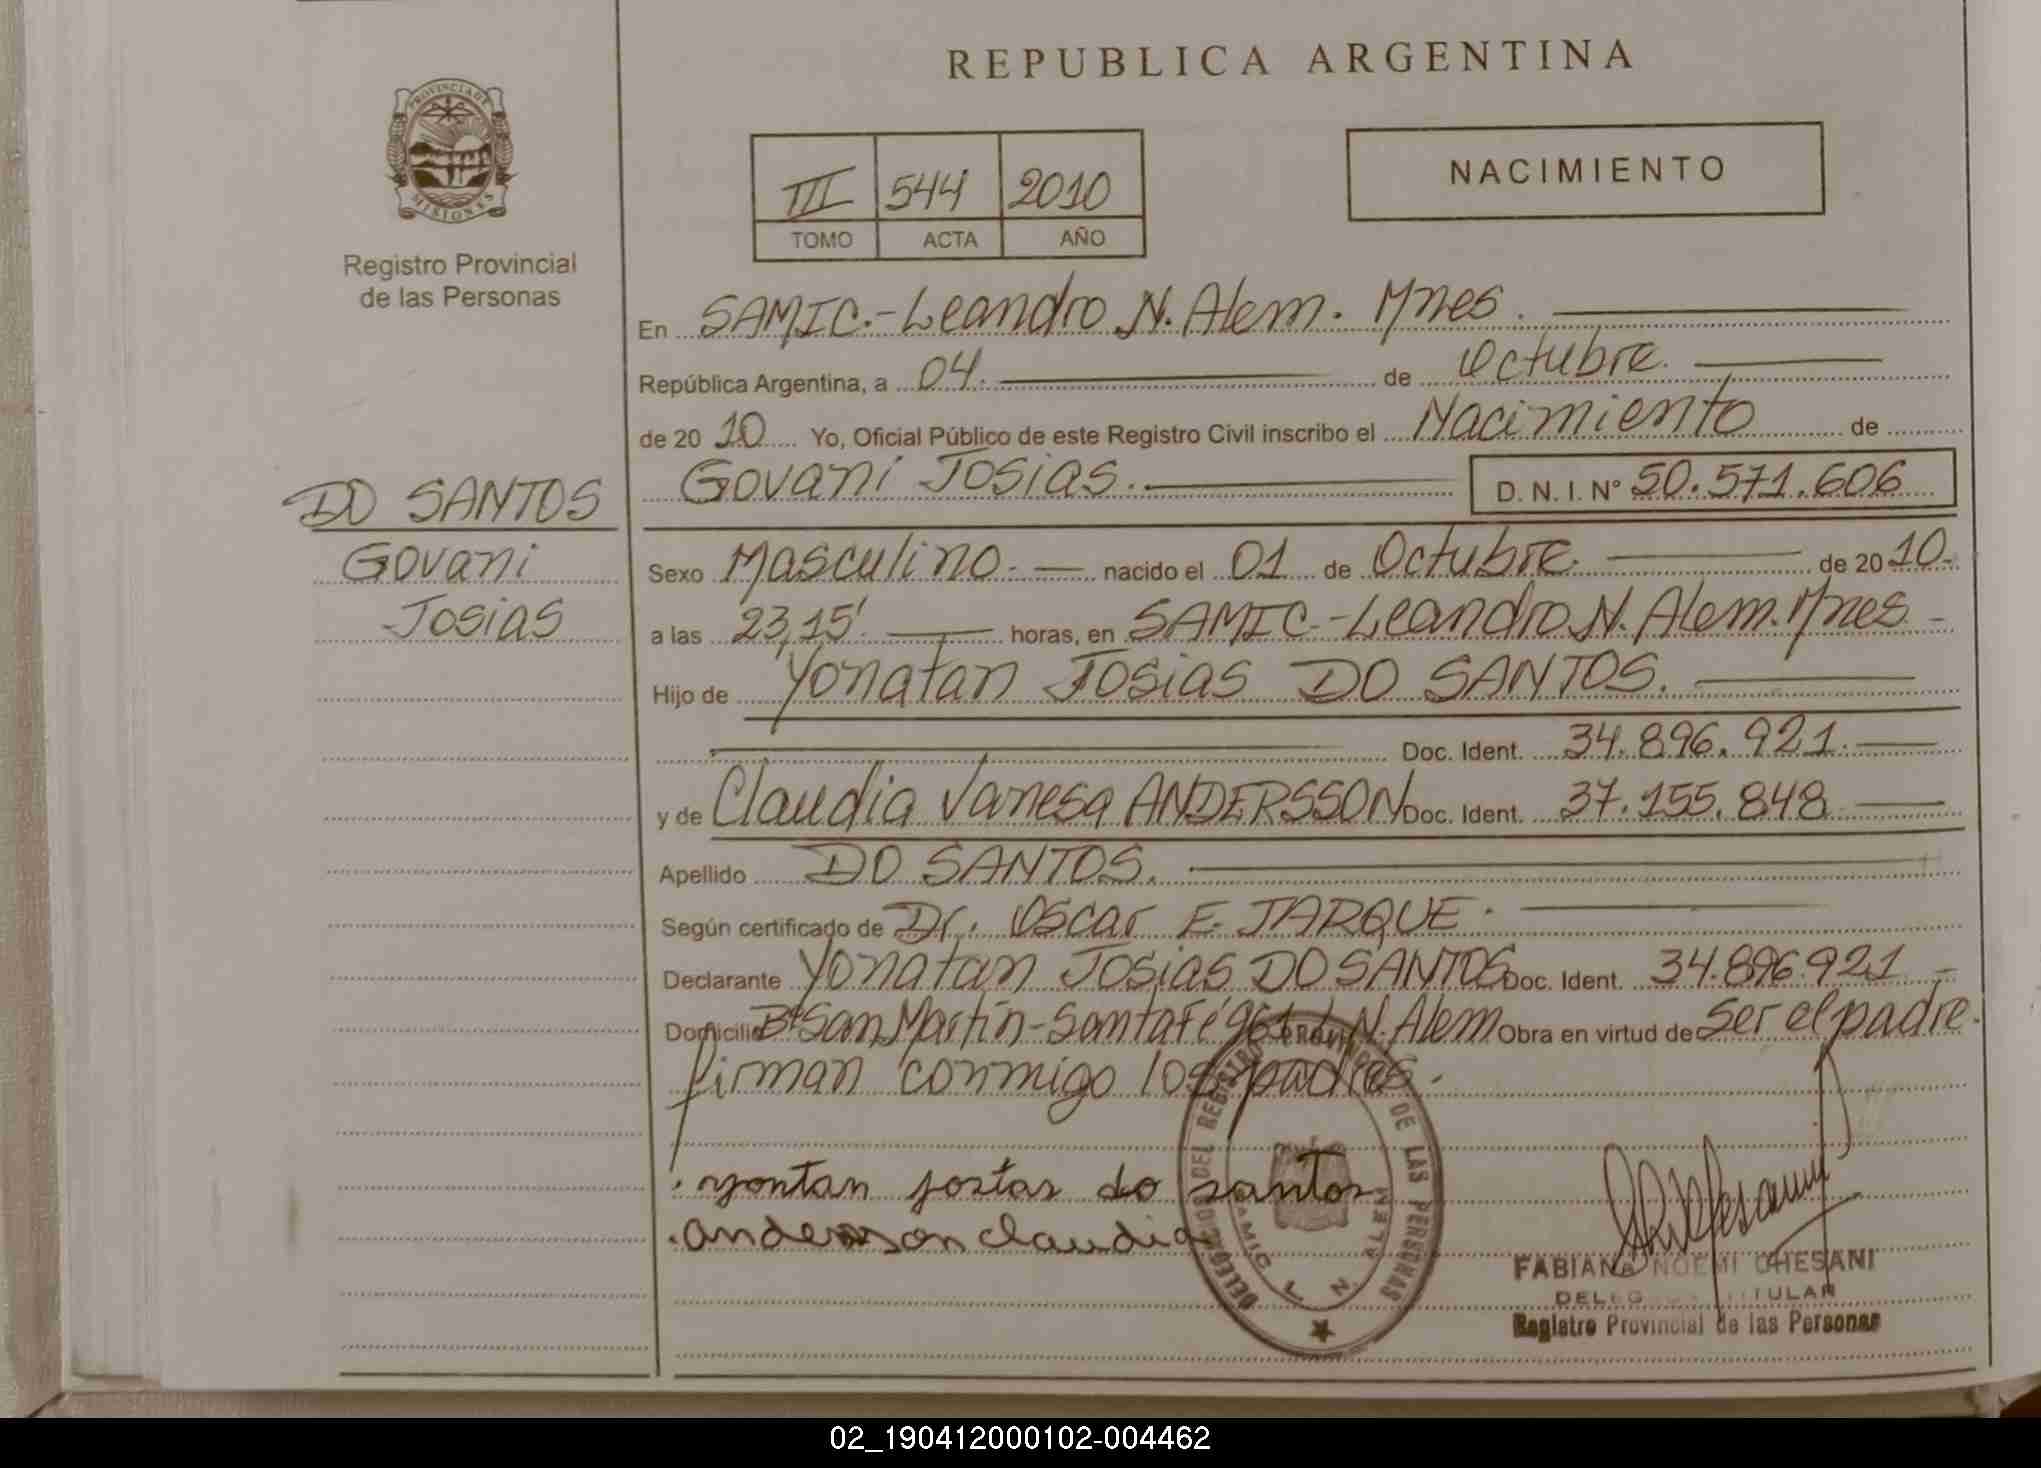 REPUBLICA ARGENTINA
PROVINCIA DE
MISIONES
Registro Provincial
de las Personas
III 544 2010
TOMO ACTA AÑO
NACIMIENTO
En SAMIC.-Leandro N. Alem. Mnes.
República Argentina, a 04. de Octubre.
de 20 10 Yo, Oficial Público de este Registro Civil inscribo el Nacimiento de
Govani Josias. D. N. I. N° 50.571.606
DO SANTOS
Govani
Josias
Sexo Masculino. nacido el 01 de Octubre. de 20 10.
a las 23,15' horas, en SAMIC.-Leandro N. Alem. Mnes
Hijo de Yonatan Josias DO SANTOS.
Doc. Ident. 34.896.921.
y de Claudia Vanesa ANDERSSON Doc. Ident. 37.155.848
Apellido DO SANTOS.
Según certificado de Dr. Oscar E. JARQUE.
Declarante Yonatan Josias DO SANTOS Doc. Ident. 34.896.921
Domicilio B° San Martín-Santa Fé 961 L.N. Alem Obra en virtud de Ser el padre.
firman conmigo los padres.
yontan josias do santos
andersson claudia
DEL REGISTRO PROVINCIAL DE LAS PERSONAS
SAMIC L. N. ALEM
FABIANA NOEMI CHESANI
TITULAR
Registro Provincial de las Personas
02_190412000102-004462